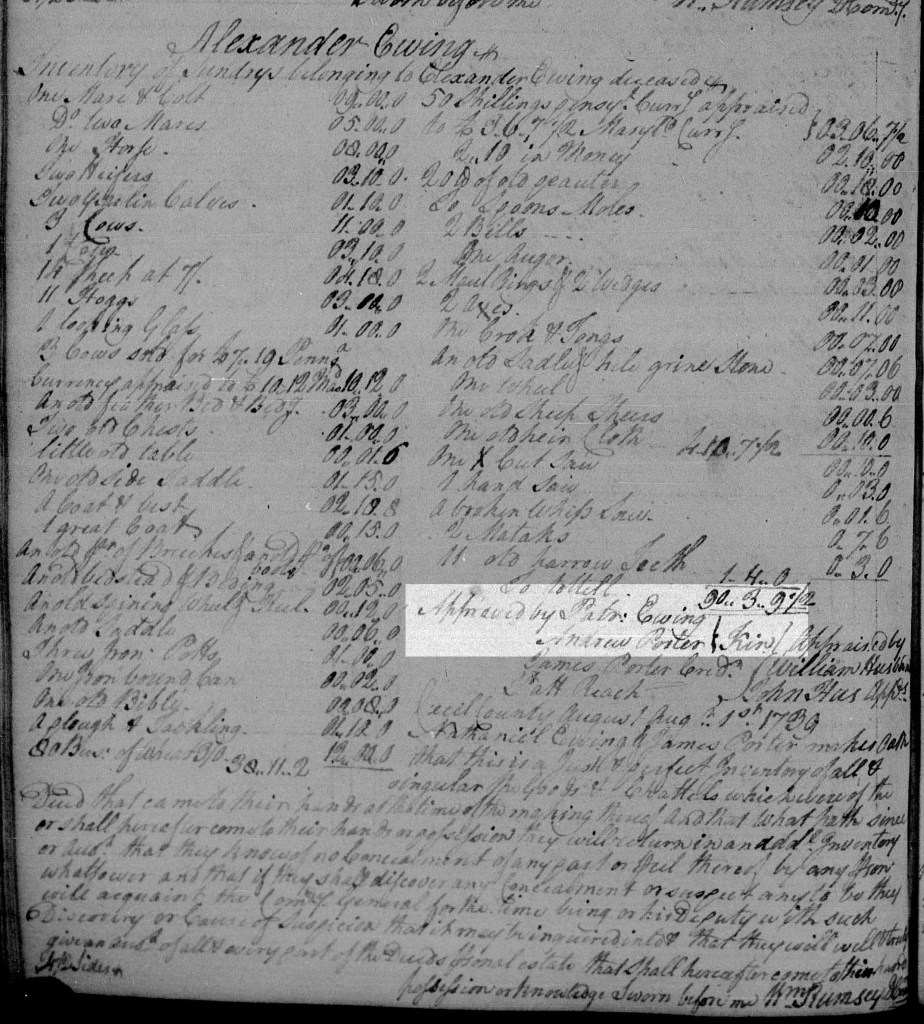 Sworn before me Wm Rumsey
Alexander Ewing
Inventory of Sundrys belonging to Alexander Ewing deceased
One Mare & Colt 09..00..0
Do two Mares 05..00..0
One Horse 08..00..0
Two Heifers 03..10..0
Calves 01..10..0
3 Cows 11..00..0
1 03..10..0
14 Sheep at 7/ 04..18..0
11 Hoggs 03..00..0
1 looking Glass 01..00..0
3 Cows sold for £7..10 Pennsa
Currency appraised to £10..12 10..12..0
An old feather Bed & 03..00..0
Two old Chests 01..00..0
little old table 00..01..6
One old Side Saddle 01..15..0
a Coat & vest 02..18..8
1 great Coat 00..15..0
An old pr of Breeches & an old 00..06..0
An old bedstead & Beding 02..05..0
An old Spining Wheel & Reel 00..12..0
An old Saddle 00..06..0
Three Iron Potts 01..00..0
One Iron bound Can 00..02..0
One old Bible 00..08..0
A plough & Tackling 01..12..0
80 Bus. of wheat 3/0 12..00..0
38..11..2
50 Shillings pensyl Curry appraised
to £3..6..7 1/2 Maryld Curry 03..06..7 1/2
2..10 in Money 02..10..00
20 of old peauter 00..18..00
To Spoons Moles 00..10..00
2 Bells 00..02..00
One Auger 00..01..00
2 Maul Rings & 2 Wedges 00..03..00
2 axes 00..11..00
One Crook & Tongs 00..07..00
an old Sadle & grine Stone 00..07..06
One Wheel 00..03..00
One old Sheep Shears 00..00..6
One old hein Cloth 00..10..0
One X Cut Saw 00..10..0
1 hand Saw 0..03..0
a broken Whip Saw 0..01..6
2 Mataks 0..7..6
11 old Harrow Teeth 0..3..0
1..4..0
90..3..9 1/2
Appraved by Patr: Ewing
Andrew Porter } Kin
James Porter Credr
Patt Reach
Appraised by
William
John Hus Apprs
Cecil County August Aug 1st 1739
Nathaniel Ewing & James Porter makes Oath
that this is a Just & perfect Inventory of all &
singular the Goods & Chattels which were of the
Decd that came to their hands at the time of the making thereof And that what hath since
or shall hereafter come to their hands or possession they will return in an addl Inventory
that they know of no Concealment of any part or thereof by any person
whatsover and that if they shall discover any Concealment or suspect any to be they
will acquaint the Comry General for the time being or his Deputy with such
Discovery or Cause of Suspicion that it may be inquired into & that they will well & truly
give an of all & every part of the Decds sonal estate that shall hereafter come to their
possession or knowledge Sworn before me Wm Rumsey